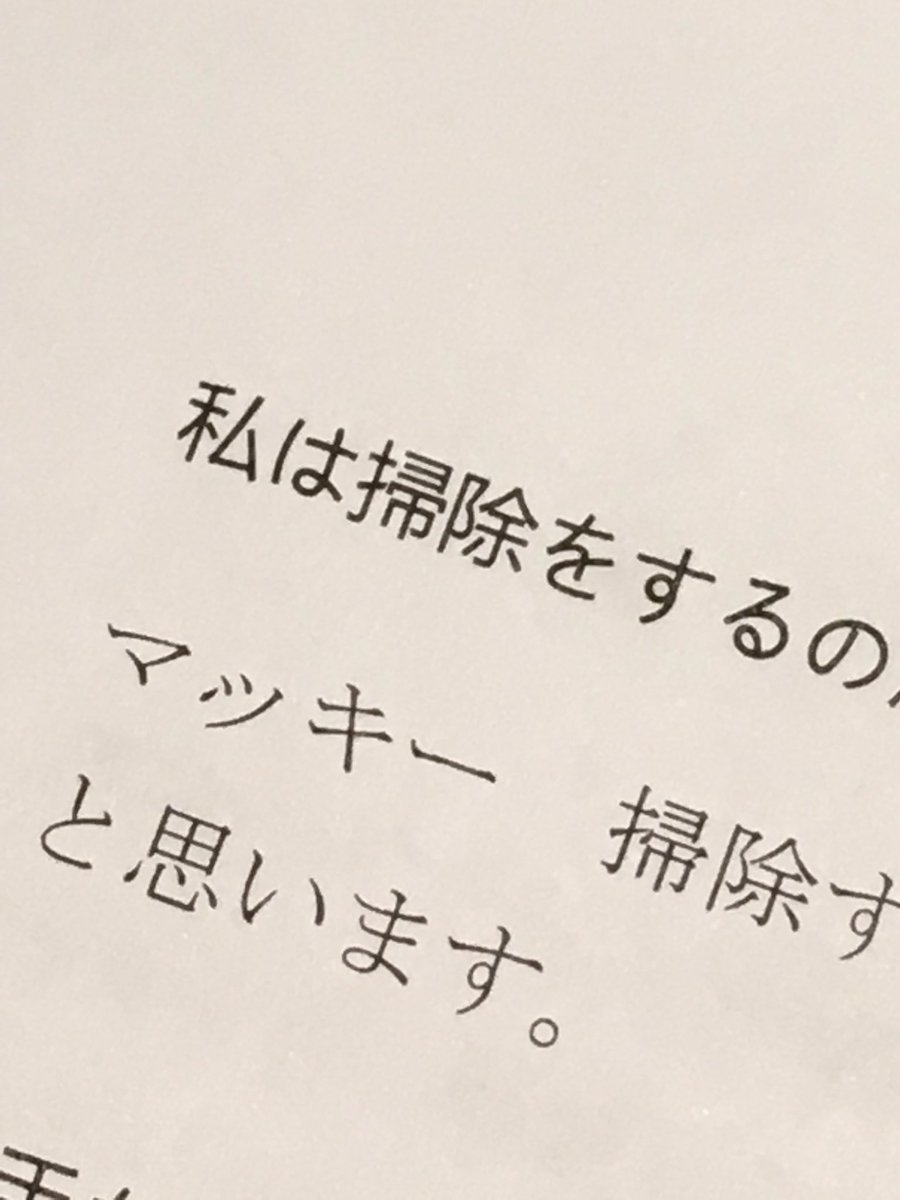 私は掃除をするの
マッキー　掃除す
と思います。